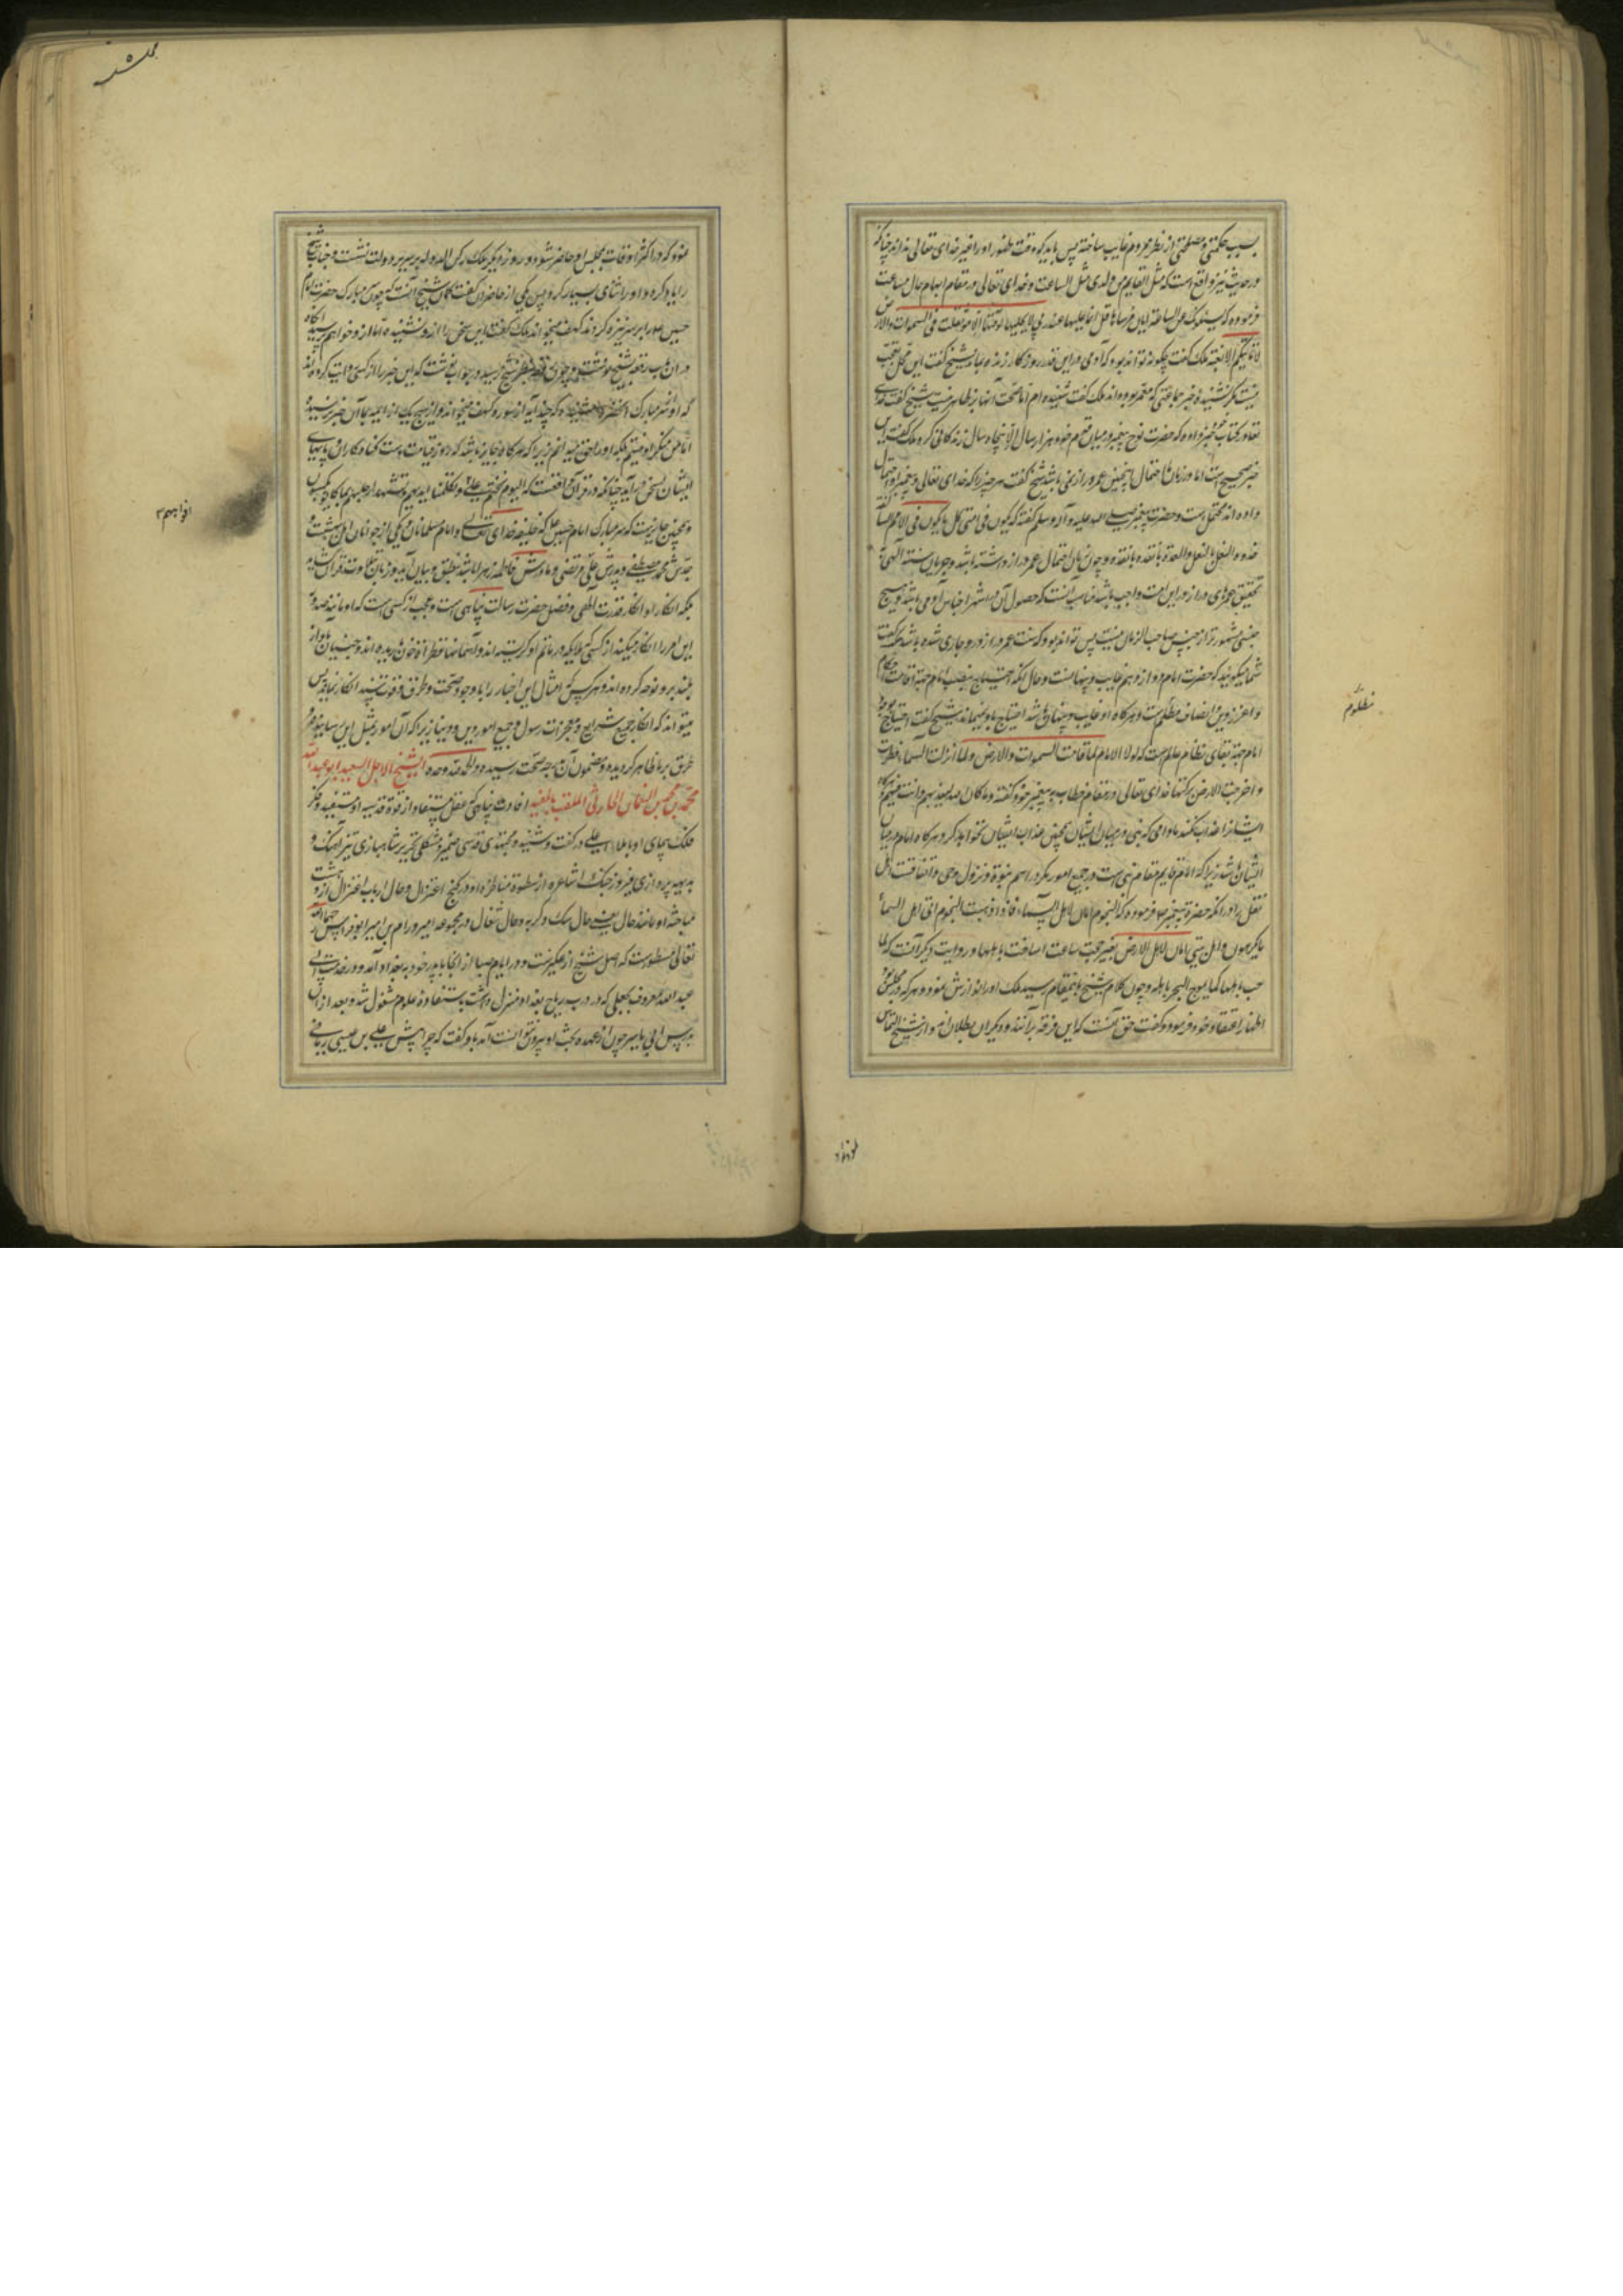 بسبب حکمتی و مصلحتی از نظر مردم غایب ساخته پس باید که وقت ظهور او را غیر خدای تعالی نداند چنانکه
در حدیث نیز واقع است که مثل القایم من ولدی مثل الساعة و خدای تعالی در مقام ابهام حال ساعت
فرموده که یسئلونک عن الساعة ایان مرسیها قل انما علمها عند ربی لا یجلیها لوقتها الا هو ثقلت فی السموات والارض
لا تاتیکم الا بغتة ملک گفت چگونه تواند بود که آدمی در این قدر روزگار زنده بماند شیخ گفت این محل تعجب
نیست مگر نشنیده خبر جماعتی که معمر بوده اند ملک گفت شنیده ام اما صحت آنها بر ما ظاهر نیست شیخ گفت خدای
تعالی در کتاب خود خبر داده که حضرت نوح پیغمبر در میان قوم خود هزار سال الا پنجاه سال زندگانی کرد ملک گفت این
خبر صحیح است اما در زمان ما احتمال اینچنین عمر دراز نمی باشد شیخ گفت هر چیز را که خدای تعالی و پیغمبر او احتمال
داده اند محتمل است و حضرت پیغمبر صلی الله علیه وآله وسلم گفته که یکون فی امتی کل ما یکون فی الامم السالفة
حذو النعل بالنعل والقذة بالقذة و چون
تحقیق عمرهای دراز در این امت واجب باشد مناسب آنست که حصول آن در اشهر اجناس آدمی باشد و هیچ
جنسی مشهورتر از جنس صاحب الزمان نیست پس تواند بود که سنت عمر دراز در او جاری شده باشد ملک گفت
شما میگویید که حضرت امام دوازدهم غایب و پنهانست و حال آنکه احتیاج بنصب امام جهت اقامت احکام
و اعزاز دین و انصاف مظلومست و هرگاه او غایب و پنهان باشد احتیاج باو نمیماند شیخ گفت احتیاج بوجود
امام جهت بقای نظام عالم است که لولا الامام لما قامت السموات والارض ولما انزلت السماء قطرة
و اخرجت الارض برکتها خدای تعالی در مقام خطاب به پیغمبر خود گفته وما کان الله لیعذبهم وانت فیهم هرگاه
ایشانرا عذاب نکند مادامی که نبی در میان ایشان همچنین عذاب ایشان نخواهد کرد هرگاه امام در میان
ایشان باشد زیرا که امام قایم مقام نبی است در جمیع امور مگر در اسم نبوة و نزول وحی
نقل را در آنکه حضرة پیغمبر فرموده که النجوم امان لاهل السماء فاذا ذهبت النجوم اتی اهل السماء
ما یکرهون و اهل بیتی امان لاهل الارض
و چون کلام شیخ باینمقام رسید ملک او را نوازش نمود و هر که در مجلس بود
اظهار اعتقاد خود فرمود و گفت حق آنست که این فرقه بر آنند و دیگران بطلان اند و از شیخ التماس
مظلوم
نمود که در اکثر اوقات بمجلس او حاضر شود و روز دیگر ملک رکن الدوله بر سریر دولت نشست و جناب شیخ
را یاد کرده او را ثنای بسیار کرد پس یکی از حاضران گفت گمان شیخ آنست که چون سر مبارک حضرت امام
حسین را بر سر نیزه کردند سوره کهف میخواند ملک گفت این سخن را از او نشنیده ام اما از او خواهم پرسید آنگاه
در آن باب رقعه بشیخ نوشت و چون رقعه بنظر شیخ رسید در جواب نوشت که این خبر را از کسی روایت کرده اند
که او از سر مبارک آنحضرت شنیده که چند آیه از سوره کهف میخواند و از هیچ یک از ائمه بما آن خبر نرسیده
اما من منکر او نیستم بلکه او را حق میدانم زیرا که هرگاه جایز باشد که در روز قیامت دست گناه کاران و پاهای
ایشان بسخن درآید چنانکه در قرآن واقعست که الیوم نختم علی افواههم وتکلمنا ایدیهم وتشهد ارجلهم بما کانوا یکسبون
و همچنین جایزست که سر مبارک امام حسین که خلیفه خدای تعالی و امام مسلمانان و یکی از جوانان اهل بهشت و
جدش محمد مصطفی و پدرش علی مرتضی و مادرش فاطمه زهرا باشد بنطق و بیان آید و زبان بتلاوت قرآن گشاید
بلکه انکار او انکار قدرت الهی و فضل حضرت رسالت پناهی است و عجب از کسی است که او مانند صدور
این امر را انکار میکند از کسی که ملایکه در ماتم او گریسته اند و از آسمانها قطرات خون باریده اند و جنیان باواز
بلند بر او نوحه کرده اند و هر کس که امثال این اخبار را با وجود صحت و طرق و قوت سند انکار نماید پس
میتواند که انکار جمیع شرایع و معجزات رسول و جمیع امور دین و دنیا زیرا که آن امور بمثل این
طرق بر ما ظاهر گردیده و مضمون آن بدرجه صحت رسیده والحمد لله وحده الشیخ الاجل السعید ابو عبد الله
محمد بن محمد بن النعمان الحارثی الملقب بالمفید افادت پناهی که عقل مستفاد از قوة قدسیه او مستفید و فکر
فلک پیمای او با ملاء اعلی در گفت و شنید مجتهدی قدسی ضمیر و متکلمی نحریر شاهبازی تیز آهنگ و
بدیهه پردازی فیروز جنگ اشاعره از سطوة مناظره او در کنج اعتزال و حال ارباب اعتزال از دهشت
مباحثه او مانند حال
تعالی مسطورست که اصل شیخ از عکبرست و در ایام صبا از آنجا با پدر خود به بغداد آمد و در خدمت ابی
عبد الله معروف بجعل که در درب رباح بغداد منزل داشت باستفاده علوم مشغول شد و بعد از آن
بدرس ابی یاسر چون از عهده بحث او بیرون نتوانست آمد باو گفت که چرا پیش علی بن عیسی رمانی
افواههم